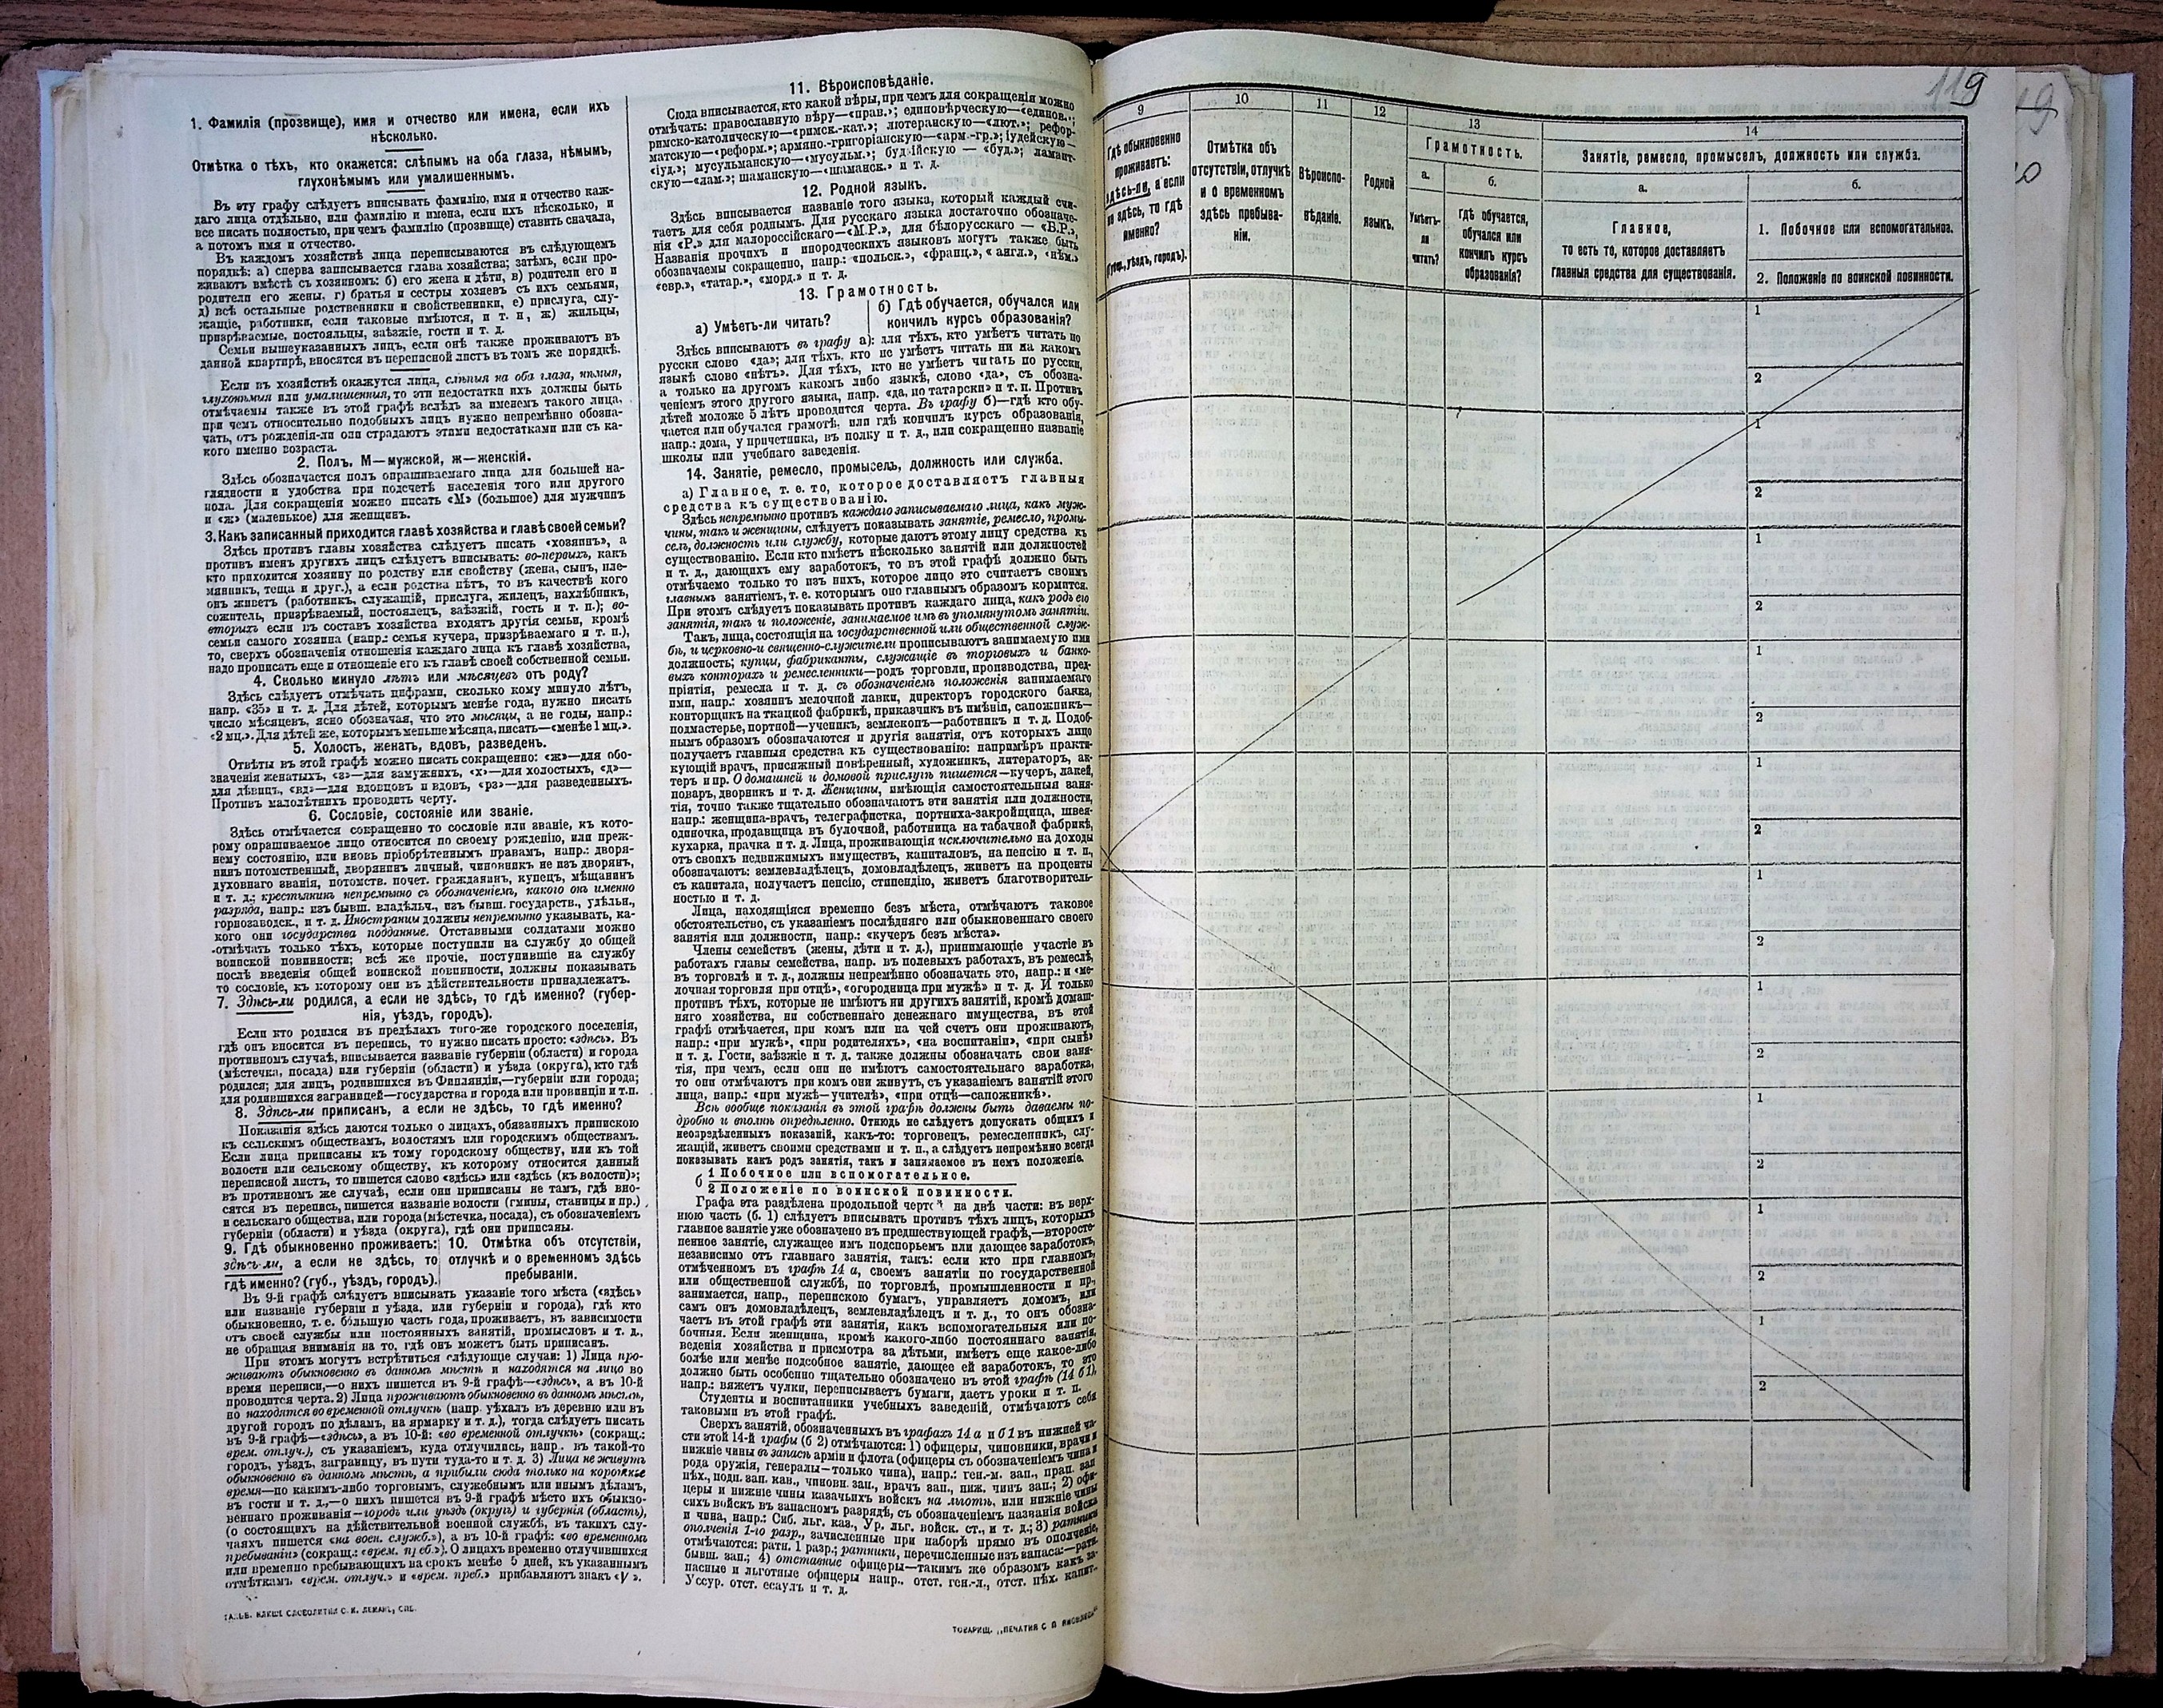 1. Фамилія (прозвище), имя и отчество или имена, если ихъ
нѣсколько.
Отмѣтка о тѣхъ, кто окажется: слѣпымъ на оба глаза, нѣмымъ,
глухонѣмымъ или умалишеннымъ.
Въ эту графу слѣдуетъ вписывать фамилію, имя и отчество каж-
даго лица отдѣльно, или фамилію и имена, если ихъ нѣсколько, и
все писать полностью, при чемъ фамилію (прозвище) ставить сначала,
а потомъ имя и отчество.
Въ каждомъ хозяйствѣ лица переписываются въ слѣдующемъ
порядкѣ: а) сперва записывается глава хозяйства; затѣмъ, если про-
живаютъ вмѣстѣ съ хозяиномъ: б) его жена и дѣти, в) родители его и
родители его жены, г) братья и сестры хозяевъ съ ихъ семьями,
д) всѣ остальные родственники и свойственники, е) прислуга, слу-
жащіе, работники, если таковые имѣются, и т. п, ж) жильцы,
призрѣваемые, постояльцы, заѣзжіе, гости и т. д.
Семьи вышеуказанныхъ лицъ, если онѣ также проживаютъ въ
данной квартирѣ, вносятся въ переписной листъ въ томъ же порядкѣ.
Если въ хозяйствѣ окажутся лица, слѣпыя на оба глаза, нѣмыя,
глухонѣмыя или умалишенныя, то эти недостатки ихъ должны быть
отмѣчаемы также въ этой графѣ вслѣдъ за именемъ такого лица,
при чемъ относительно подобныхъ лицъ нужно непремѣнно обозна-
чать, отъ рожденія-ли они страдаютъ этими недостатками или съ ка-
кого именно возраста.
2. Полъ. М—мужской, ж—женскій.
Здѣсь обозначается полъ опрашиваемаго лица для большей на-
глядности и удобства при подсчетѣ населенія того или другого
пола. Для сокращенія можно писать «М» (большое) для мужчинъ
и «ж» (маленькое) для женщинъ.
3. Какъ записанный приходится главѣ хозяйства и главѣ своей семьи?
Здѣсь противъ главы хозяйства слѣдуетъ писать «хозяинъ», а
противъ именъ другихъ лицъ слѣдуетъ вписывать: во-первыхъ, какъ
кто приходится хозяину по родству или свойству (жена, сынъ, пле-
мянникъ, теща и друг.), а если родства нѣтъ, то въ качествѣ кого
онъ живетъ (работникъ, служащій, прислуга, жилецъ, нахлѣбникъ,
сожитель, призрѣваемый, постоялецъ, заѣзжій, гость и т. п.); во-
вторыхъ если въ составъ хозяйства входятъ другія семьи, кромѣ
семьи самого хозяина (напр.: семья кучера, призрѣваемаго и т. п.),
то, сверхъ обозначенія отношенія каждаго лица къ главѣ хозяйства,
надо прописать еще и отношеніе его къ главѣ своей собственной семьи.
4. Сколько минуло лѣтъ или мѣсяцевъ отъ роду?
Здѣсь слѣдуетъ отмѣчать цифрами, сколько кому минуло лѣтъ,
напр. «35» и т. д. Для дѣтей, которымъ менѣе года, нужно писать
число мѣсяцевъ, ясно обозначая, что это мѣсяцы, а не годы, напр.:
«2 мц.». Для дѣтей же, которымъ меньше мѣсяца, писать—«менѣе 1 мц.».
5. Холостъ, женатъ, вдовъ, разведенъ.
Отвѣты въ этой графѣ можно писать сокращенно: «ж»—для обо-
значенія женатыхъ, «з»—для замужнихъ, «х»—для холостыхъ, «д»—
для дѣвицъ, «вд»—для вдовцовъ и вдовъ, «рз»—для разведенныхъ.
Противъ малолѣтнихъ проводить черту.
6. Сословіе, состояніе или званіе.
Здѣсь отмѣчается сокращенно то сословіе или званіе, къ кото-
рому опрашиваемое лицо относится по своему рожденію, или преж-
нему состоянію, или вновь пріобрѣтеннымъ правамъ, напр.: дворя-
нинъ потомственный, дворянинъ личный, чиновникъ не изъ дворянъ,
духовнаго званія, потомств. почет. гражданинъ, купецъ, мѣщанинъ
и т. д.; крестьянинъ непремѣнно съ обозначеніемъ, какого онъ именно
разряда, напр.: изъ бывш. владѣльч., изъ бывш. государств., удѣльн.,
горнозаводск., и т. д. Иностранцы должны непремѣнно указывать, ка-
кого они государства подданные. Отставными солдатами можно
отмѣчать только тѣхъ, которые поступили на службу до общей
воинской повинности; всѣ же прочіе, поступившіе на службу
послѣ введенія общей воинской повинности, должны показывать
то сословіе, къ которому они въ дѣйствительности принадлежатъ.
7. Здѣсь-ли родился, а если не здѣсь, то гдѣ именно? (губер-
нія, уѣздъ, городъ).
Если кто родился въ предѣлахъ того-же городского поселенія,
гдѣ онъ вносится въ перепись, то нужно писать просто: «здѣсь». Въ
противномъ случаѣ, вписывается названіе губерніи (области) и города
(мѣстечка, посада) или губерніи (области) и уѣзда (округа), кто гдѣ
родился; для лицъ, родившихся въ Финляндіи,—губерніи или города;
для родившихся заграницей—государства и города или провинціи и т.п.
8. Здѣсь-ли приписанъ, а если не здѣсь, то гдѣ именно?
Показанія здѣсь даются только о лицахъ, обязанныхъ припискою
къ сельскимъ обществамъ, волостямъ или городскимъ обществамъ.
Если лица приписаны къ тому городскому обществу, или къ той
волости или сельскому обществу, къ которому относится данный
переписной листъ, то пишется слово «здѣсь» или «здѣсь (къ волости)»;
въ противномъ же случаѣ, если они приписаны не тамъ, гдѣ вно-
сятся въ перепись, пишется названіе волости (гмины, станицы и пр.)
и сельскаго общества, или города (мѣстечка, посада), съ обозначеніемъ
губерніи (области) и уѣзда (округа), гдѣ они приписаны.
9. Гдѣ обыкновенно проживаетъ:
здѣсь-ли, а если не здѣсь, то
гдѣ именно? (губ., уѣздъ, городъ).
10. Отмѣтка объ отсутствіи,
отлучкѣ и о временномъ здѣсь
пребываніи.
Въ 9-й графѣ слѣдуетъ вписывать указаніе того мѣста («здѣсь»
или названіе губерніи и уѣзда, или губерніи и города), гдѣ кто
обыкновенно, т. е. большую часть года, проживаетъ, въ зависимости
отъ своей службы или постоянныхъ занятій, промысловъ и т. д.,
не обращая вниманія на то, гдѣ онъ можетъ быть приписанъ.
При этомъ могутъ встрѣтиться слѣдующіе случаи: 1) Лица про-
живаютъ обыкновенно въ данномъ мѣстѣ и находятся на лицо во
время переписи,—о нихъ пишется въ 9-й графѣ—«здѣсь», а въ 10-й
проводится черта. 2) Лица проживаютъ обыкновенно въ данномъ мѣстѣ,
но находятся во временной отлучкѣ (напр. уѣхалъ въ деревню или въ
другой городъ по дѣламъ, на ярмарку и т. д.), тогда слѣдуетъ писать
въ 9-й графѣ—«здѣсь», а въ 10-й: «во временной отлучкѣ» (сокращ.:
врем. отлуч.), съ указаніемъ, куда отлучились, напр. въ такой-то
городъ, уѣздъ, заграницу, въ пути туда-то и т. д. 3) Лица не живутъ
обыкновенно въ данномъ мѣстѣ, а прибыли сюда только на короткое
время—по какимъ-либо торговымъ, служебнымъ или инымъ дѣламъ,
въ гости и т. д.,—о нихъ пишется въ 9-й графѣ мѣсто ихъ обыкно-
веннаго проживанія—городъ или уѣздъ (округъ) и губернія (область),
(о состоящихъ на дѣйствительной военной службѣ, въ такихъ слу-
чаяхъ пишется «на воен. служб.»), а въ 10-й графѣ: «во временномъ
пребываніи» (сокращ.: «врем. преб.»). О лицахъ временно отлучившихся
или временно пребывающихъ на срокъ менѣе 5 дней, къ указаннымъ
отмѣткамъ «врем. отлуч.» и «врем. преб.» прибавляютъ знакъ «V».
11. Вѣроисповѣданіе.
Сюда вписывается, кто какой вѣры, при чемъ для сокращенія можно
отмѣчать: православную вѣру—«прав.»; единовѣрческую—«единов.»;
римско-католическую—«римск.-кат.»; лютеранскую—«лют.»; рефор-
матскую—«реформ.»; армяно-григоріанскую—«арм.-гр.»; іудейскую—
«іуд.»; мусульманскую—«мусульм.»; буддійскую—«буд.»; ламаит-
скую—«лам.»; шаманскую—«шаманск.» и т. д.
12. Родной языкъ.
Здѣсь вписывается названіе того языка, который каждый счи-
таетъ для себя роднымъ. Для русскаго языка достаточно обозначе-
нія «Р.» для малороссійскаго—«М.Р.», для бѣлорусскаго — «Б.Р.»,
Названія прочихъ и инородческихъ языковъ могутъ также быть
обозначаемы сокращенно, напр.: «польск.», «франц.», «англ.», «нѣм.»
«евр.», «татар.», «морд.» и т. д.
13. Грамотность.
а) Умѣетъ-ли читать?
б) Гдѣ обучается, обучался или
кончилъ курсъ образованія?
Здѣсь вписываютъ въ графу а): для тѣхъ, кто умѣетъ читать по
русски слово «да»; для тѣхъ, кто не умѣетъ читать ни на какомъ
языкѣ слово «нѣтъ». Для тѣхъ, кто не умѣетъ читать по русски,
а только на другомъ какомъ либо языкѣ, слово «да», съ обозна-
ченіемъ этого другого языка, напр. «да, по татарски» и т. п. Противъ
дѣтей моложе 5 лѣтъ проводится черта. Въ графу б)—гдѣ кто обу-
чается или обучался грамотѣ, или гдѣ кончилъ курсъ образованія,
напр.: дома, у причетника, въ полку и т. д., или сокращенно названіе
школы или учебнаго заведенія.
14. Занятіе, ремесло, промыселъ, должность или служба.
а) Главное, т. е. то, которое доставляетъ главныя
средства къ существованію.
Здѣсь непремѣнно противъ каждаго записываемаго лица, какъ муж-
чины, такъ и женщины, слѣдуетъ показывать занятіе, ремесло, промы-
селъ, должность или службу, которые даютъ этому лицу средства къ
существованію. Если кто имѣетъ нѣсколько занятій или должностей
и т. д., дающихъ ему заработокъ, то въ этой графѣ должно быть
отмѣчаемо только то изъ нихъ, которое лицо это считаетъ своимъ
главнымъ занятіемъ, т. е. которымъ оно главнымъ образомъ кормится.
При этомъ слѣдуетъ показывать противъ каждаго лица, какъ родъ его
занятія, такъ и положеніе, занимаемое имъ въ упомянутомъ занятіи.
Такъ, лица, состоящія на государственной или общественной служ-
бѣ, и церковно-и священно-служители прописываютъ занимаемую ими
должность; купцы, фабриканты, служащіе въ торговыхъ и банко-
выхъ конторахъ и ремесленники—родъ торговли, производства, пред-
пріятія, ремесла и т. д. съ обозначеніемъ положенія занимаемаго
ими, напр.: хозяинъ мелочной лавки, директоръ городского банка,
конторщикъ на ткацкой фабрикѣ, приказчикъ въ имѣніи, сапожникъ—
подмастерье, портной—ученикъ, землекопъ—работникъ и т. д. Подоб-
нымъ образомъ обозначаются и другія занятія, отъ которыхъ лицо
получаетъ главныя средства къ существованію: напримѣръ практи-
кующій врачъ, присяжный повѣренный, художникъ, литераторъ, ак-
теръ и пр. О домашней и домовой прислугѣ пишется—кучеръ, лакей,
поваръ, дворникъ и т. д. Женщины, имѣющія самостоятельныя заня-
тія, точно также тщательно обозначаютъ эти занятія или должности,
напр.: женщина-врачъ, телеграфистка, портниха-закройщица, швея-
одиночка, продавщица въ булочной, работница на табачной фабрикѣ,
кухарка, прачка и т. д. Лица, проживающія исключительно на доходы
отъ своихъ недвижимыхъ имуществъ, капиталовъ, на пенсію и т. п.,
обозначаютъ: землевладѣлецъ, домовладѣлецъ, живетъ на проценты
съ капитала, получаетъ пенсію, стипендію, живетъ благотворитель-
ностью и т. д.
Лица, находящіяся временно безъ мѣста, отмѣчаютъ таковое
обстоятельство, съ указаніемъ послѣдняго или обыкновеннаго своего
занятія или должности, напр.: «кучеръ безъ мѣста».
Члены семействъ (жены, дѣти и т. д.), принимающіе участіе въ
работахъ главы семейства, напр. въ полевыхъ работахъ, въ ремеслѣ,
въ торговлѣ и т. д., должны непремѣнно обозначать это, напр.: и «ме-
лочная торговля при отцѣ», «огородница при мужѣ» и т. д. И только
противъ тѣхъ, которые не имѣютъ ни другихъ занятій, кромѣ домаш-
няго хозяйства, ни собственнаго денежнаго имущества, въ этой
графѣ отмѣчается, при комъ или на чей счетъ они проживаютъ,
напр.: «при мужѣ», «при родителяхъ», «на воспитаніи», «при сынѣ»
и т. д. Гости, заѣзжіе и т. д. также должны обозначать свои заня-
тія, при чемъ, если они не имѣютъ самостоятельнаго заработка,
то они отмѣчаютъ при комъ они живутъ, съ указаніемъ занятій этого
лица, напр.: «при мужѣ—учителѣ», «при отцѣ—сапожникѣ».
Всѣ вообще показанія въ этой графѣ должны быть даваемы по-
дробно и вполнѣ опредѣленно. Отнюдь не слѣдуетъ допускать общихъ и
неопредѣленныхъ показаній, какъ-то: торговецъ, ремесленникъ, слу-
жащій, живетъ своими средствами и т. п., а слѣдуетъ непремѣнно всегда
показывать какъ родъ занятія, такъ и занимаемое въ немъ положеніе.
б 1 Побочное или вспомогательное.
2 Положеніе по воинской повинности.
Графа эта раздѣлена продольной чертой на двѣ части: въ верх-
нюю часть (б. 1) слѣдуетъ вписывать противъ тѣхъ лицъ, которыхъ
главное занятіе уже обозначено въ предшествующей графѣ,—второсте-
пенное занятіе, служащее имъ подспорьемъ или дающее заработокъ,
независимо отъ главнаго занятія, такъ: если кто при главномъ,
отмѣченномъ въ графѣ 14 а, своемъ занятіи по государственной
или общественной службѣ, по торговлѣ, промышленности и пр.,
занимается, напр., перепискою бумагъ, управляетъ домомъ, или
самъ онъ домовладѣлецъ, землевладѣлецъ и т. д., то онъ обозна-
чаетъ въ этой графѣ эти занятія, какъ вспомогательныя или по-
бочныя. Если женщина, кромѣ какого-либо постояннаго занятія,
веденія хозяйства и присмотра за дѣтьми, имѣетъ еще какое-либо
болѣе или менѣе подсобное занятіе, дающее ей заработокъ, то это
должно быть особенно тщательно обозначено въ этой графѣ (14 б 1),
напр.: вяжетъ чулки, переписываетъ бумаги, даетъ уроки и т. п.
Студенты и воспитанники учебныхъ заведеній, отмѣчаютъ себя
таковыми въ этой графѣ.
Сверхъ занятій, обозначенныхъ въ графахъ 14 а и б 1 въ нижней ча-
сти этой 14-й графы (б 2) отмѣчаются: 1) офицеры, чиновники, врачи и
нижніе чины въ запасѣ арміи и флота (офицеры съ обозначеніемъ чина и
рода оружія, генералы—только чина), напр.: ген.-м. зап., прап. зап.
пѣх., подп. зап. кав., чиновн. зап., врачъ зап., ниж. чинъ зап.; 2) офи-
церы и нижніе чины казачьихъ войскъ на льготѣ, или нижніе чины
сихъ войскъ въ запасномъ разрядѣ, съ обозначеніемъ названія войска
и чина, напр.: Сиб. льг. каз., Ур. льг. войск. ст., и т. д.; 3) ратники
ополченія 1-го разр., зачисленные при наборѣ прямо въ ополченіе,
отмѣчаются: ратн. 1 разр.; ратники, перечисленные изъ запаса:—ратн.
бывш. зап.; 4) отставные офицеры—такимъ же образомъ какъ за-
пасные и льготные офицеры напр., отст. ген.-л., отст. пѣх. капит.
Уссур. отст. есаулъ и т. д.
119
9
10
11
12
13
14
Гдѣ обыкновенно
проживаетъ:
здѣсь-ли, а если
не здѣсь, то гдѣ
именно?
(губ., уѣздъ, городъ).
Отмѣтка объ
отсутствіи, отлучкѣ
и о временномъ
здѣсь пребыва-
ніи.
Вѣроиспо-
вѣданіе.
Родной
языкъ.
Грамотность.
а.
Умѣетъ-
ли
читать?
б.
Гдѣ обучается,
обучался или
кончилъ курсъ
образованія?
Занятіе, ремесло, промыселъ, должность или служба.
а.
Главное,
то есть то, которое доставляетъ
главныя средства для существованія.
б.
1. Побочное или вспомогательное.
2. Положеніе по воинской повинности.
1
2
1
2
1
2
1
2
1
2
1
2
1
2
1
2
1
2
1
2